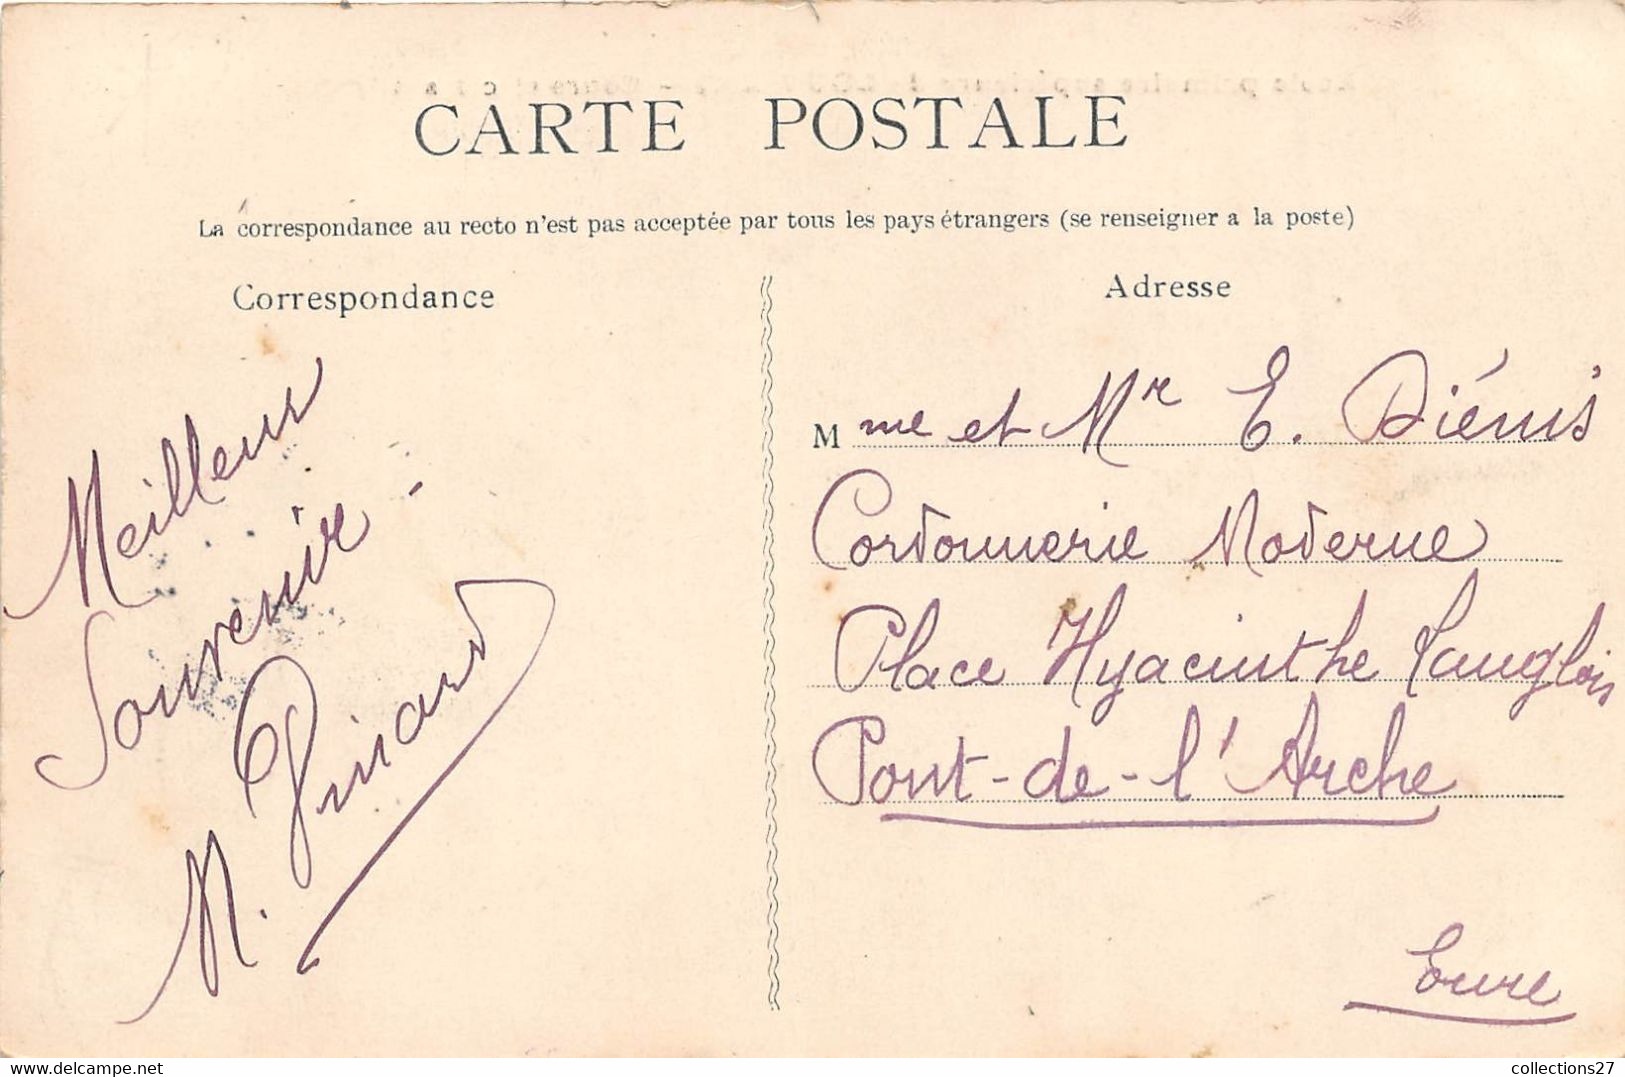 CARTE POSTALE
La correspondance au recto n'est pas acceptée par tous les pays étrangers (se renseigner a la poste)
Correspondance
Meilleur
Souvenir -
M. Pinard
Adresse
Mme et Mr E. Diénis
Cordonnerie Moderne
Place Hyacinthe Langlois
Pont-de-l'Arche
Eure
collections27